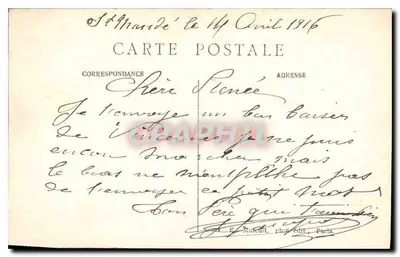 St Mandé le 14 Avril 1916
CARTE POSTALE
CORRESPONDANCE
ADRESSE
Chère Renée
Je t'envoye un bon baiser
de Vincennes je ne puis
encor marcher mais
le bras ne m'empêche pas
de t'envoyer ce petit mot
Ton Père qui t'aime bien
E. Malcuit, phot-édit., Paris.